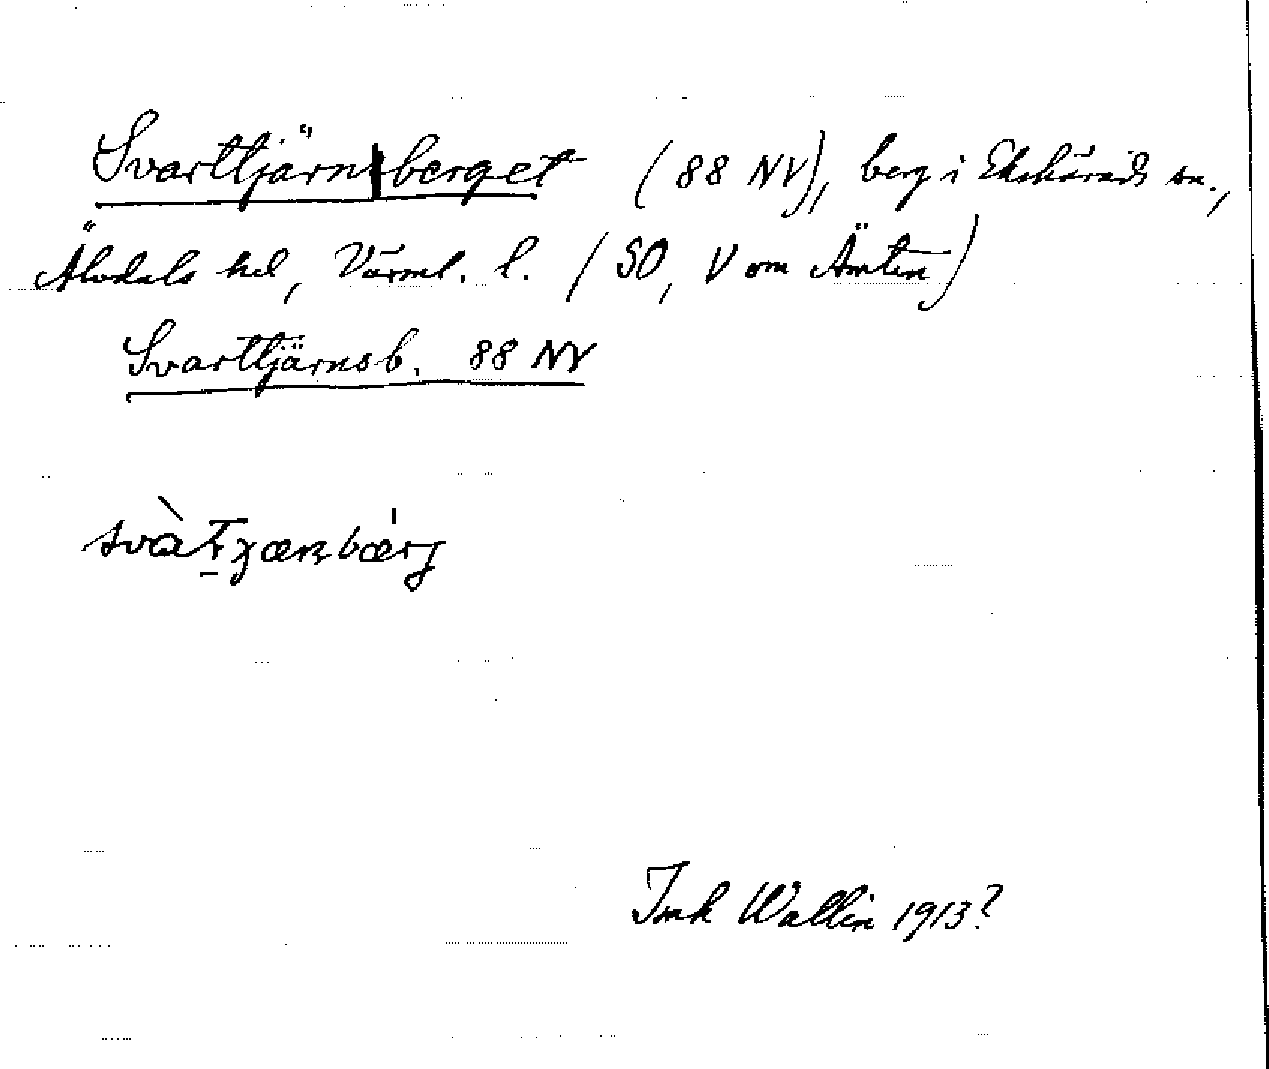 Svarttjärnsberget (88 NV), berg i Ekshärads sn.,
Älvdals hd, Värml. l. (SO, V om Ämten)
Svarttjärnsb. 88 NV
Ink Wallin 1913?